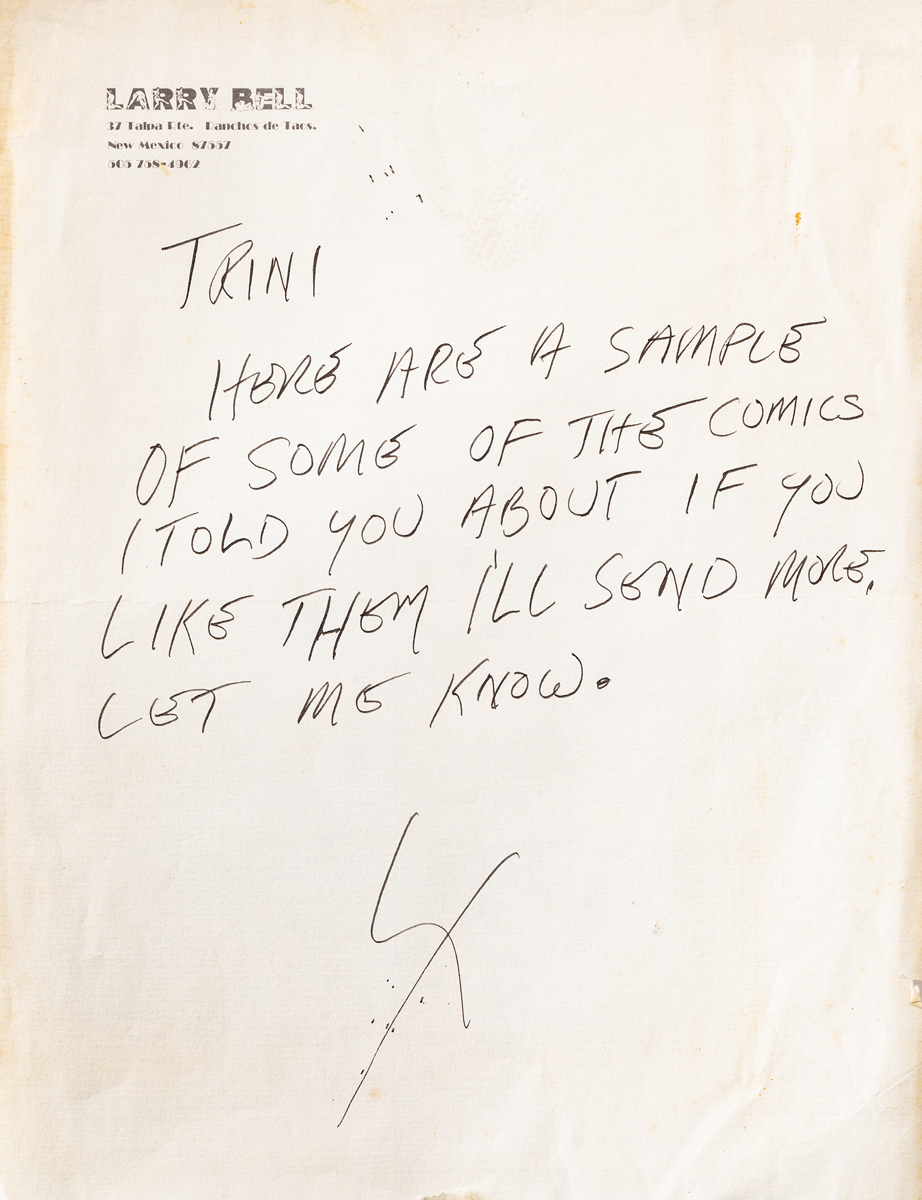 LARRY BELL
37 Talpa Rte. Ranchos de Taos.
New Mexico 87557
505 758-4962
TRINI
HERE ARE A SAMPLE
OF SOME OF THE COMICS
I TOLD YOU ABOUT IF YOU
LIKE THEM I'LL SEND MORE.
LET ME KNOW.